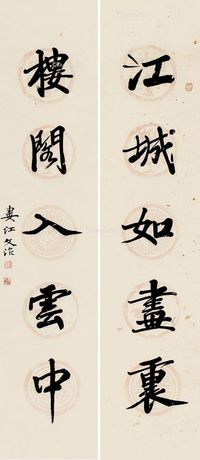 江城如畫裏
樓閣入雲中
婁江文治